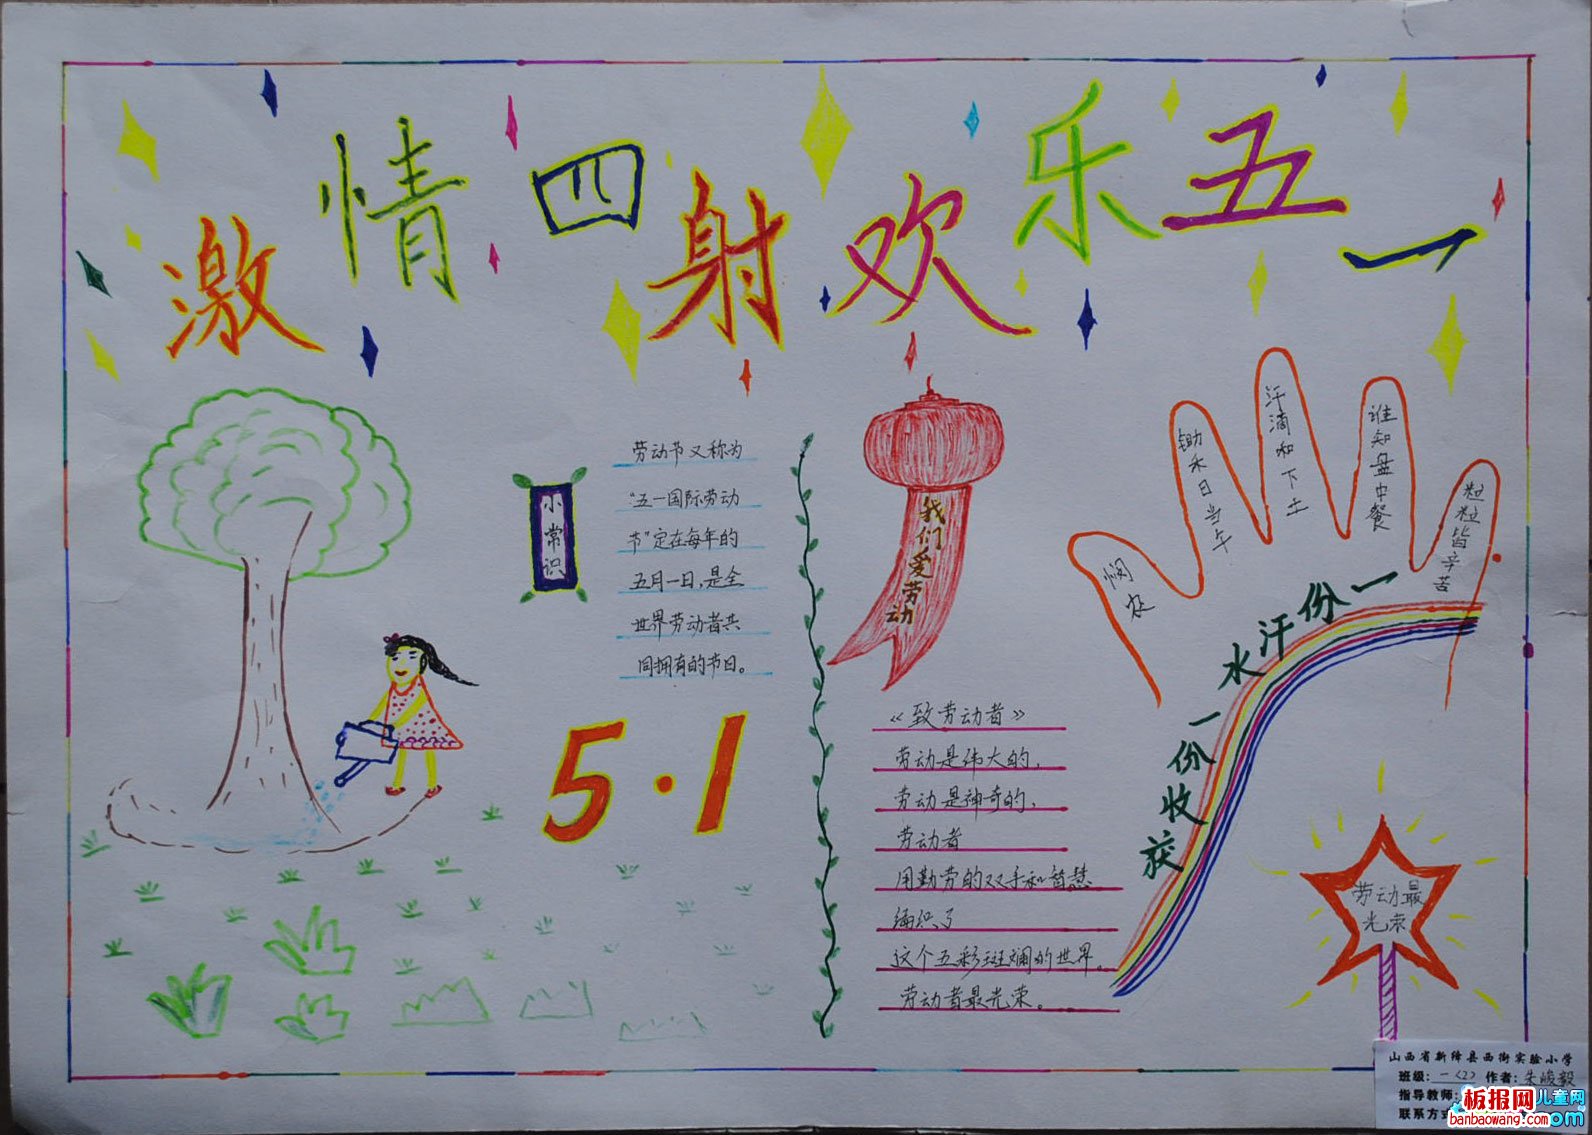 激情四射欢乐五一
小常识
劳动节又称为
“五一国际劳动
节”定在每年的
五月一日,是全
世界劳动者共
同拥有的节日。
5·1
我们爱劳动
《致劳动者》
劳动是伟大的,
劳动是神奇的,
劳动者
用勤劳的双手和智慧
编织了
这个五彩斑斓的世界。
劳动者最光荣。
悯农
锄禾日当午
汗滴和下土
谁知盘中餐
粒粒皆辛苦
一份汗水
一份收获
劳动最
光荣
山西省新绛县西街实验小学
班级:一〈2〉作者:朱峻毅
指导教师:
联系方式
板报网
儿童网
banbaowang.com